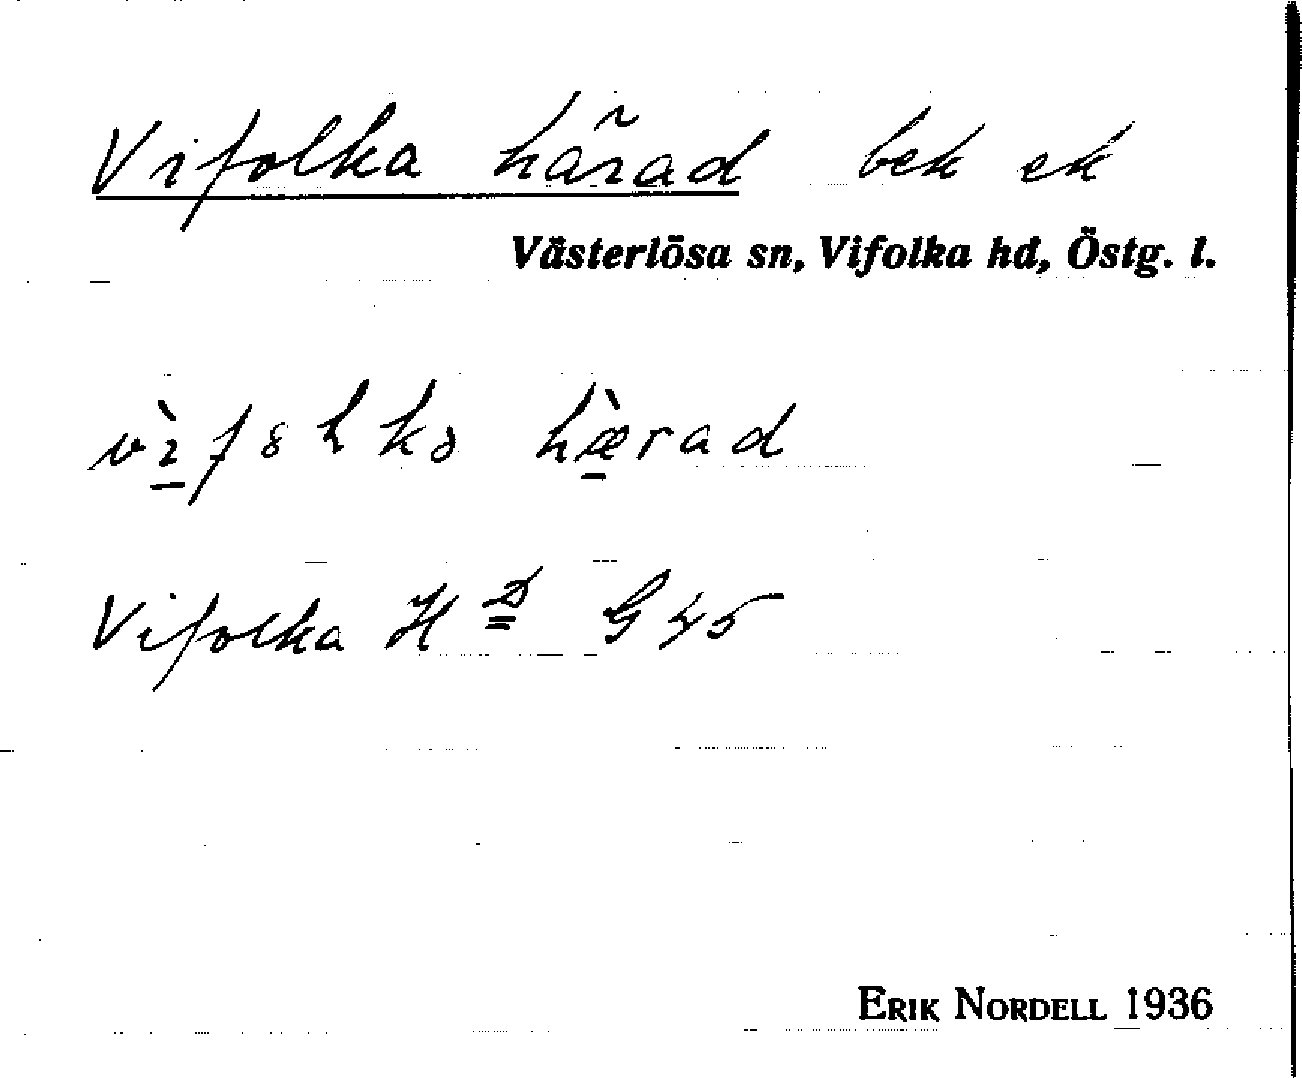 Vifolka härad bek ek
Västerlösa sn, Vifolka hd, Östg. l.
hærad
Vifolka H D G 45
ERIK NORDELL 1936